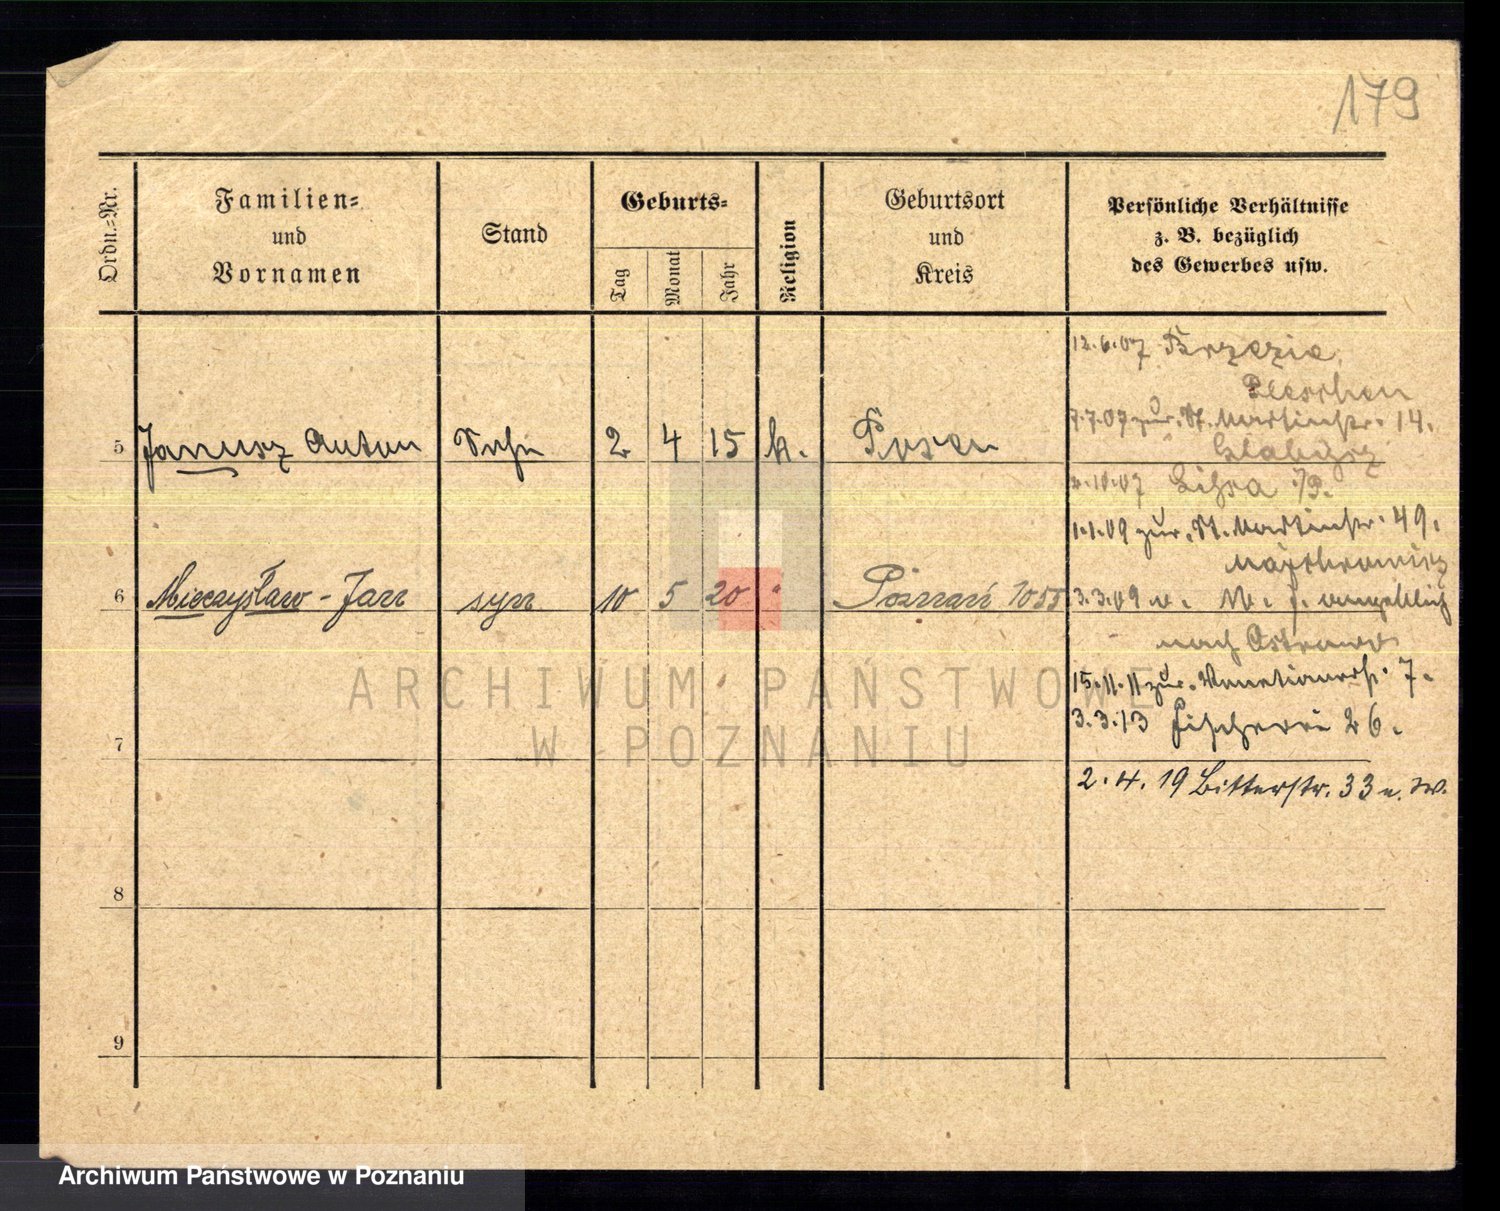 179
Ordn.-Nr.
Familien-
und
Vornamen
Stand
Geburts-
Tag
Monat
Jahr
Religion
Geburtsort
und
Kreis
Persönliche Verhältnisse
z. B. bezüglich
des Gewerbes usw.
12.6.07
Pleschen
7.7.07 zur. St. Martinstr. 14.
5 Janusz Anton Sohn 2 4 15 k. Posen
1.1.09 zur. St. Martinstr. 49.
6 Mieczysław - Jan syn 10 5 20 " Poznań 1055
3.3.09 angeblich
nach Ostrowo
15.11.11 zur. Venetianerstr. 7.
7
3.3.13 Fischerei 26.
2.4.19 Bitterstr. 33 n. W.
8
9
ARCHIWUM PAŃSTWOWE
W POZNANIU
Archiwum Państwowe w Poznaniu